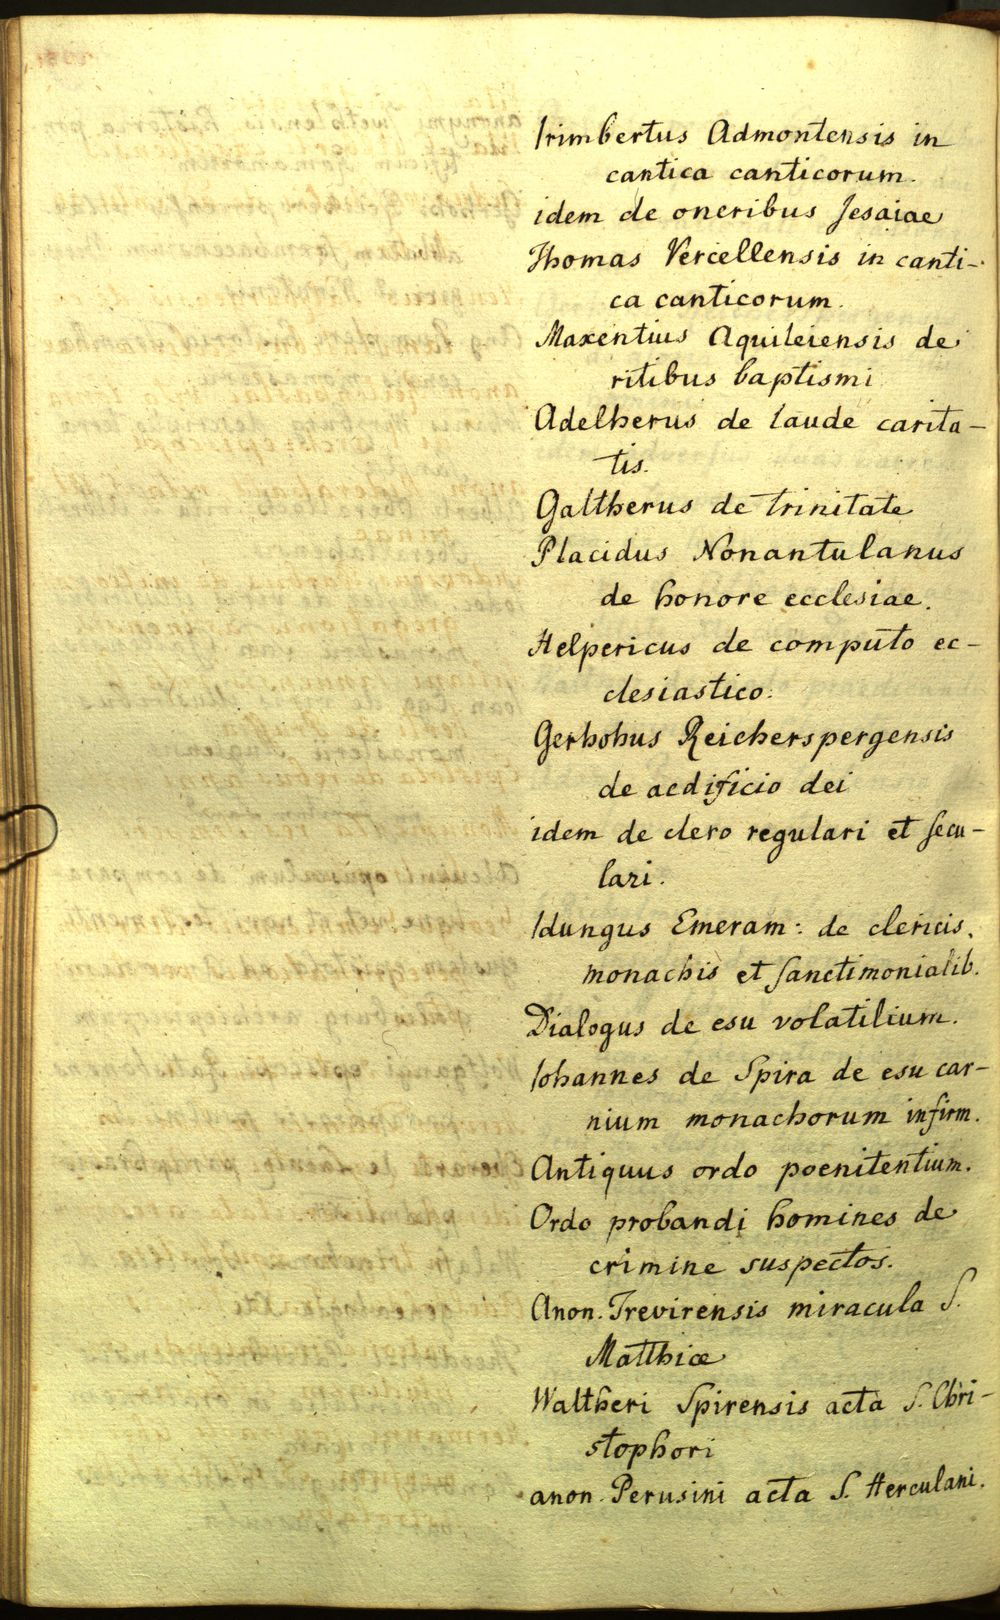 Irimbertus Admontensis in
cantica canticorum.
idem de oneribus Jesaiae
Thomas Vercellensis in canti-
ca canticorum.
Maxentius Aquileiensis de
ritibus baptismi
Adelherus de laude carita-
tis.
Galtherus de trinitate
Placidus Nonantulanus
de honore ecclesiae.
Helpericus de computo ec-
clesiastico.
Gerhohus Reicherspergensis
de aedificio dei
idem de clero regulari et secu-
lari.
Idungus Emeram: de clericis,
monachis et sanctimonialib.
Dialogus de esu volatilium.
Iohannes de Spira de esu car-
nium monachorum infirm.
Antiquus ordo poenitentium.
Ordo probandi homines de
crimine suspectos.
Anon. Trevirensis miracula S.
Matthiæ
Waltheri Spirensis acta S. Chri-
stophori
anon. Perusini acta S. Herculani.